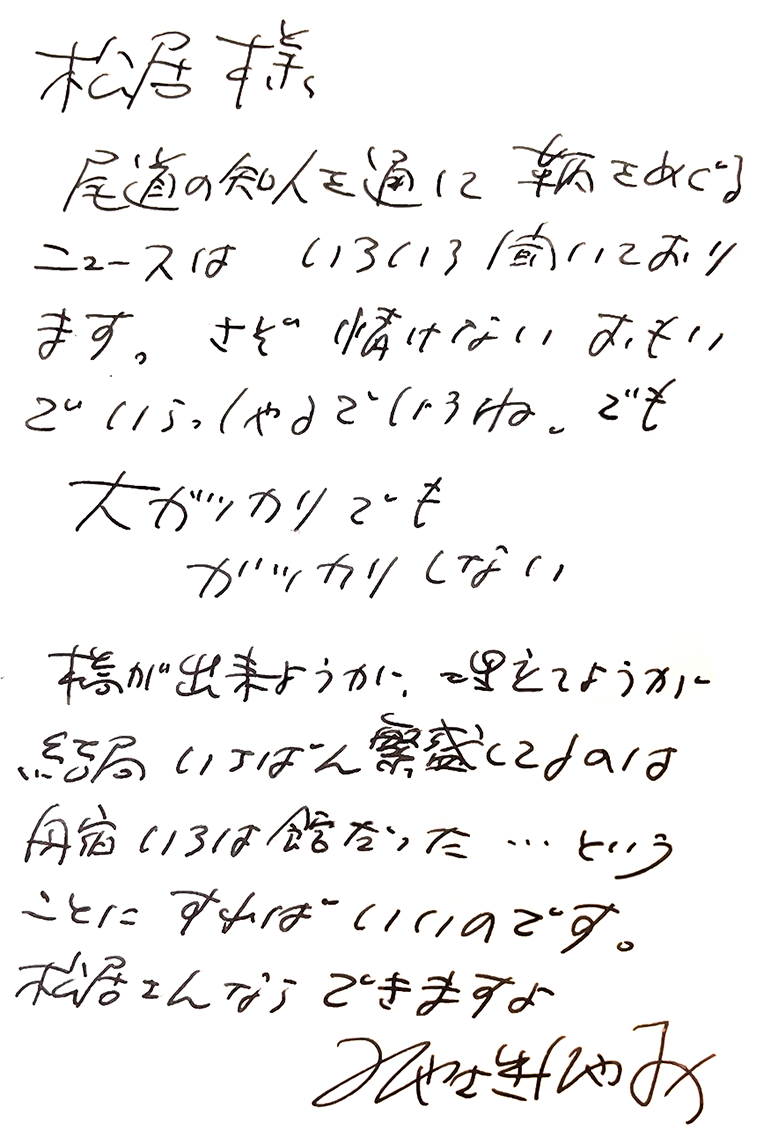 松居様
尾道の知人を通じて 鞆をめぐる
ニュースは いろいろ聞いており
ます。さぞ 情けない おもい
でいらっしゃるでしょうね。でも
大ガッカリでも
ガッカリしない
橋が出来ようが、埋立てようが
結局 いちばん繁盛してるのは
舟宿いろは館だった…という
ことに すればいいのです。
松居さんなら できますよ
みやざきはやお